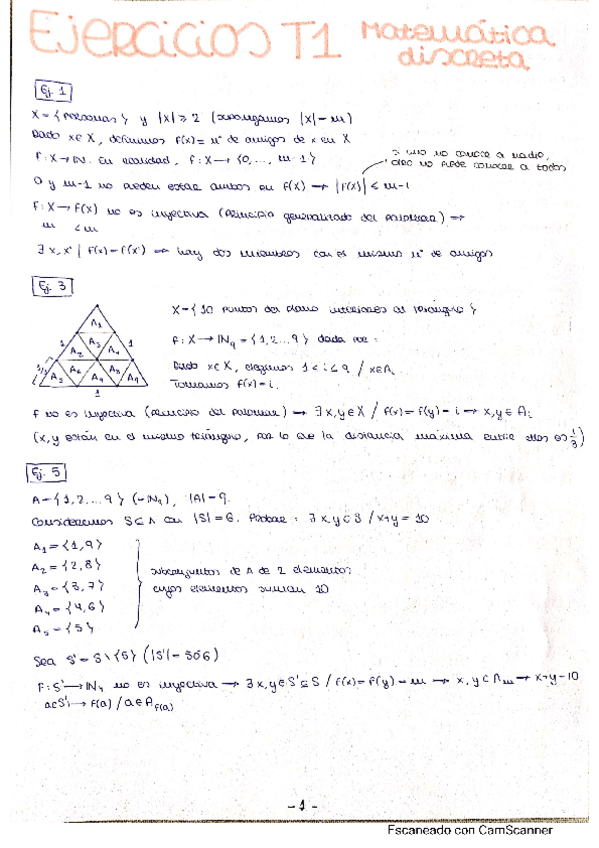 EJERCICIOS T1 Matemática discreta
Ej. 1
X = {personas} y |X| ≥ 2 (supongamos |X| = m)
Dado x∈X, definimos f(x) = nº de amigos de x en X
f: X → ℕ. En realidad, f: X → {0, ..., m-1}
si uno no conoce a nadie,
otro no puede conocer a todos
0 y m-1 no pueden estar ambos en f(X) → |f(X)| ≤ m-1
f: X → f(X) no es inyectiva (principio generalizado del palomar) →
m < m
∃ x, x' | f(x) = f(x') → hay dos miembros con el mismo nº de amigos
Ej. 3
X = {10 puntos del plano interiores al triángulo}
f: X → ℕ₉ = {1, 2 ... 9} dada por:
Dado x∈X, elegimos 1 < i ≤ 9 / x∈Aᵢ
Tomamos f(x) = i.
A₁
1 A₂ A₃ A₄ 1
1/3 A₅ A₆ A₇ A₈ A₉
1
f no es inyectiva (principio del palomar) → ∃ x, y ∈ X / f(x) = f(y) = i → x, y ∈ Aᵢ
(x, y están en el mismo triángulo, por lo que la distancia máxima entre ellos es 1/3)
Ej. 5
A = {1, 2, ... 9} (= ℕ₉), |A| = 9.
Consideremos S ⊆ A con |S| = 6. Probar: ∃ x, y ∈ S / x+y = 10
A₁ = {1, 9}
A₂ = {2, 8}
A₃ = {3, 7}
A₄ = {4, 6}
A₅ = {5}
subconjuntos de A de 2 elementos
cuyos elementos suman 10
Sea S' = S \ {5} (|S'| = 5 ó 6)
f: S' → ℕ₄ no es inyectiva → ∃ x, y ∈ S' ⊆ S / f(x) = f(y) = m → x, y ∈ Aₘ → x+y = 10
a∈S' → f(a) / a ∈ A_f(a)
- 1 -
Escaneado con CamScanner